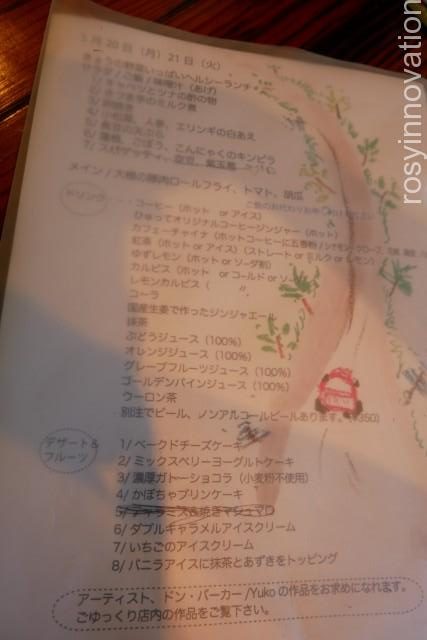 5月20日（月）21日（火）
きょうの野菜いっぱいヘルシーランチ
サラダ / ご飯 / 味噌汁（あげ）
1/ キャベツとツナの酢の物
ミルク煮
4/ 小松菜、人参、エリンギの白あえ
5/ 長豆の天ぷら
6/ 蓮根、ごぼう、こんにゃくのキンピラ
7/ スパゲッティー、空豆、紫玉葱
メイン / 大根の豚肉ロールフライ、トマト、胡瓜
ドリンク
コーヒー（ホット or アイス）
ひゅってオリジナルコーヒージンジャー（ホット）
カフェーチャイナ（ホットコーヒーに五香粉 / シナモン、クローブ、
紅茶（ホット or アイス）（ストレート or ミルク or レモン）
ゆずレモン（ホット or ソーダ割）
カルピス（ホット or コールド or ソーダ
レモンカルピス（ 〃
コーラ
国産生姜で作ったジンジャエール
抹茶
ぶどうジュース（100%）
オレンジジュース（100%）
グレープフルーツジュース（100%）
ゴールデンパインジュース（100%）
ウーロン茶
別注でビール、ノンアルコールビールあります。（¥350）
デザート＆
フルーツ
1/ ベークドチーズケーキ
2/ ミックスベリーヨーグルトケーキ
3/ 濃厚ガトーショコラ（小麦粉不使用）
4/ かぼちゃプリンケーキ
5/ ティラミス&焼きマシュマロ
6/ ダブルキャラメルアイスクリーム
7/ いちごのアイスクリーム
8/ バニラアイスに抹茶とあずきをトッピング
アーティスト、ドン・パーカー /Yuko の作品をお求めになれます。
ごゆっくり店内の作品をご覧下さい。
rosyinnovation